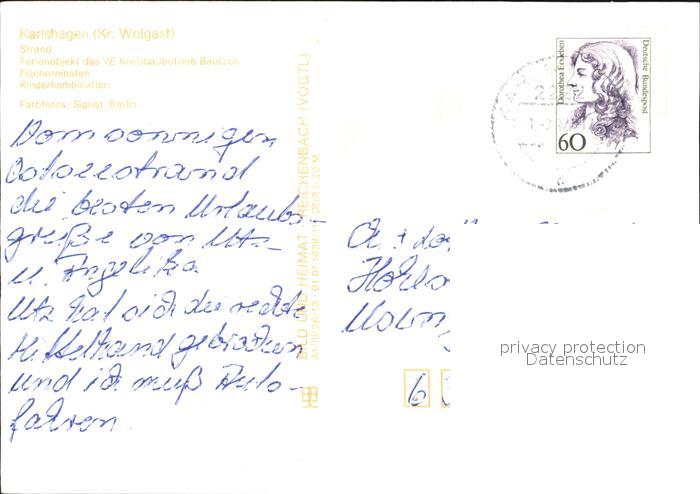 Karlshagen (Kr. Wolgast)
Strand
Ferienobjekt des VE Kreisbaubetrieb Bautzen
Fischereihafen
Kinderkombination
Farbfotos: Signist, Berlin
Vom sonnigen
Ostseestrand
die besten Urlaubs-
grüße von Utz
u. Angelika
Utz hat sich die rechte
Mittelhand gebrochen
und ich muß Auto-
fahren.
BILD UND HEIMAT · REICHENBACH (VOGTL)
Dorothea Erxleben
Deutsche Bundespost
60
6
privacy protection
Datenschutz